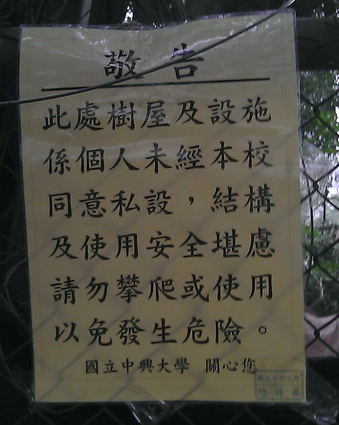 敬告
此處樹屋及設施
係個人未經本校
同意私設，結構
及使用安全堪慮
請勿攀爬或使用
以免發生危險。
國立中興大學 關心您